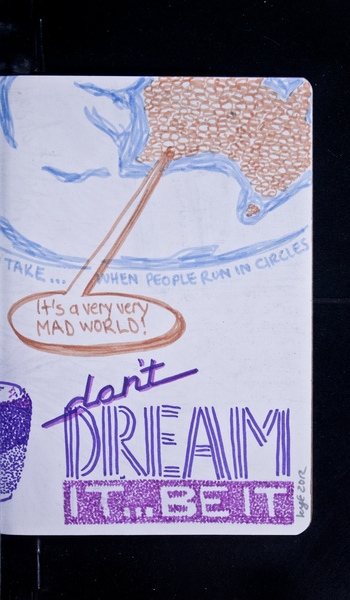 TAKE... WHEN PEOPLE RUN IN CIRCLES
It's a very very
MAD WORLD!
don't
DREAM
IT...BE IT
2012